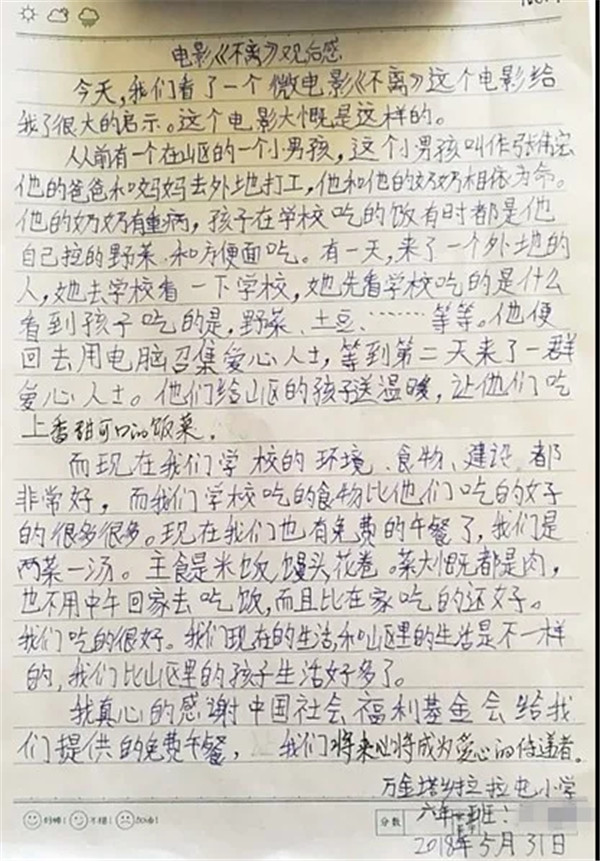 电影《不离》观后感
今天,我们看了一个微电影《不离》这个电影给
我了很大的启示。这个电影大慨是这样的。
从前有一个在山区的一个小男孩,这个小男孩叫作张伟宏
他的爸爸和妈妈去外地打工,他和他的奶奶相依为命。
他的奶奶有重病,孩子在学校吃的饭有时都是他
自己拉的野菜.和方便面吃。有一天,来了一个外地的
人,她去学校看一下学校,她先看学校吃的是什么
看到孩子吃的是,野菜、土豆、……等等。他便
回去用电脑召集爱心人士,等到第二天来了一群
爱心人士。他们给山区的孩子送温暖,让他们吃
上香甜可口的饭菜。
而现在我们学校的环境、食物、建设都
非常好,而我们学校吃的食物比他们吃的好
的很多很多。现在我们也有免费的午餐了,我们是
两菜一汤。主食是米饭馒头花卷。菜大慨都是肉,
也不用中午回家去吃饭,而且比在家吃的还好。
我们吃的很好。我们现在的生活,和山区里的生活是不一样
的,我们比山区里的孩子生活好多了。
我真心的感谢中国社会福利基金会给我
们提供的免费午餐,我们将来也将成为爱心的传递者。
万金塔乡拉拉屯小学
分数
六年 班:
2018年5月31日